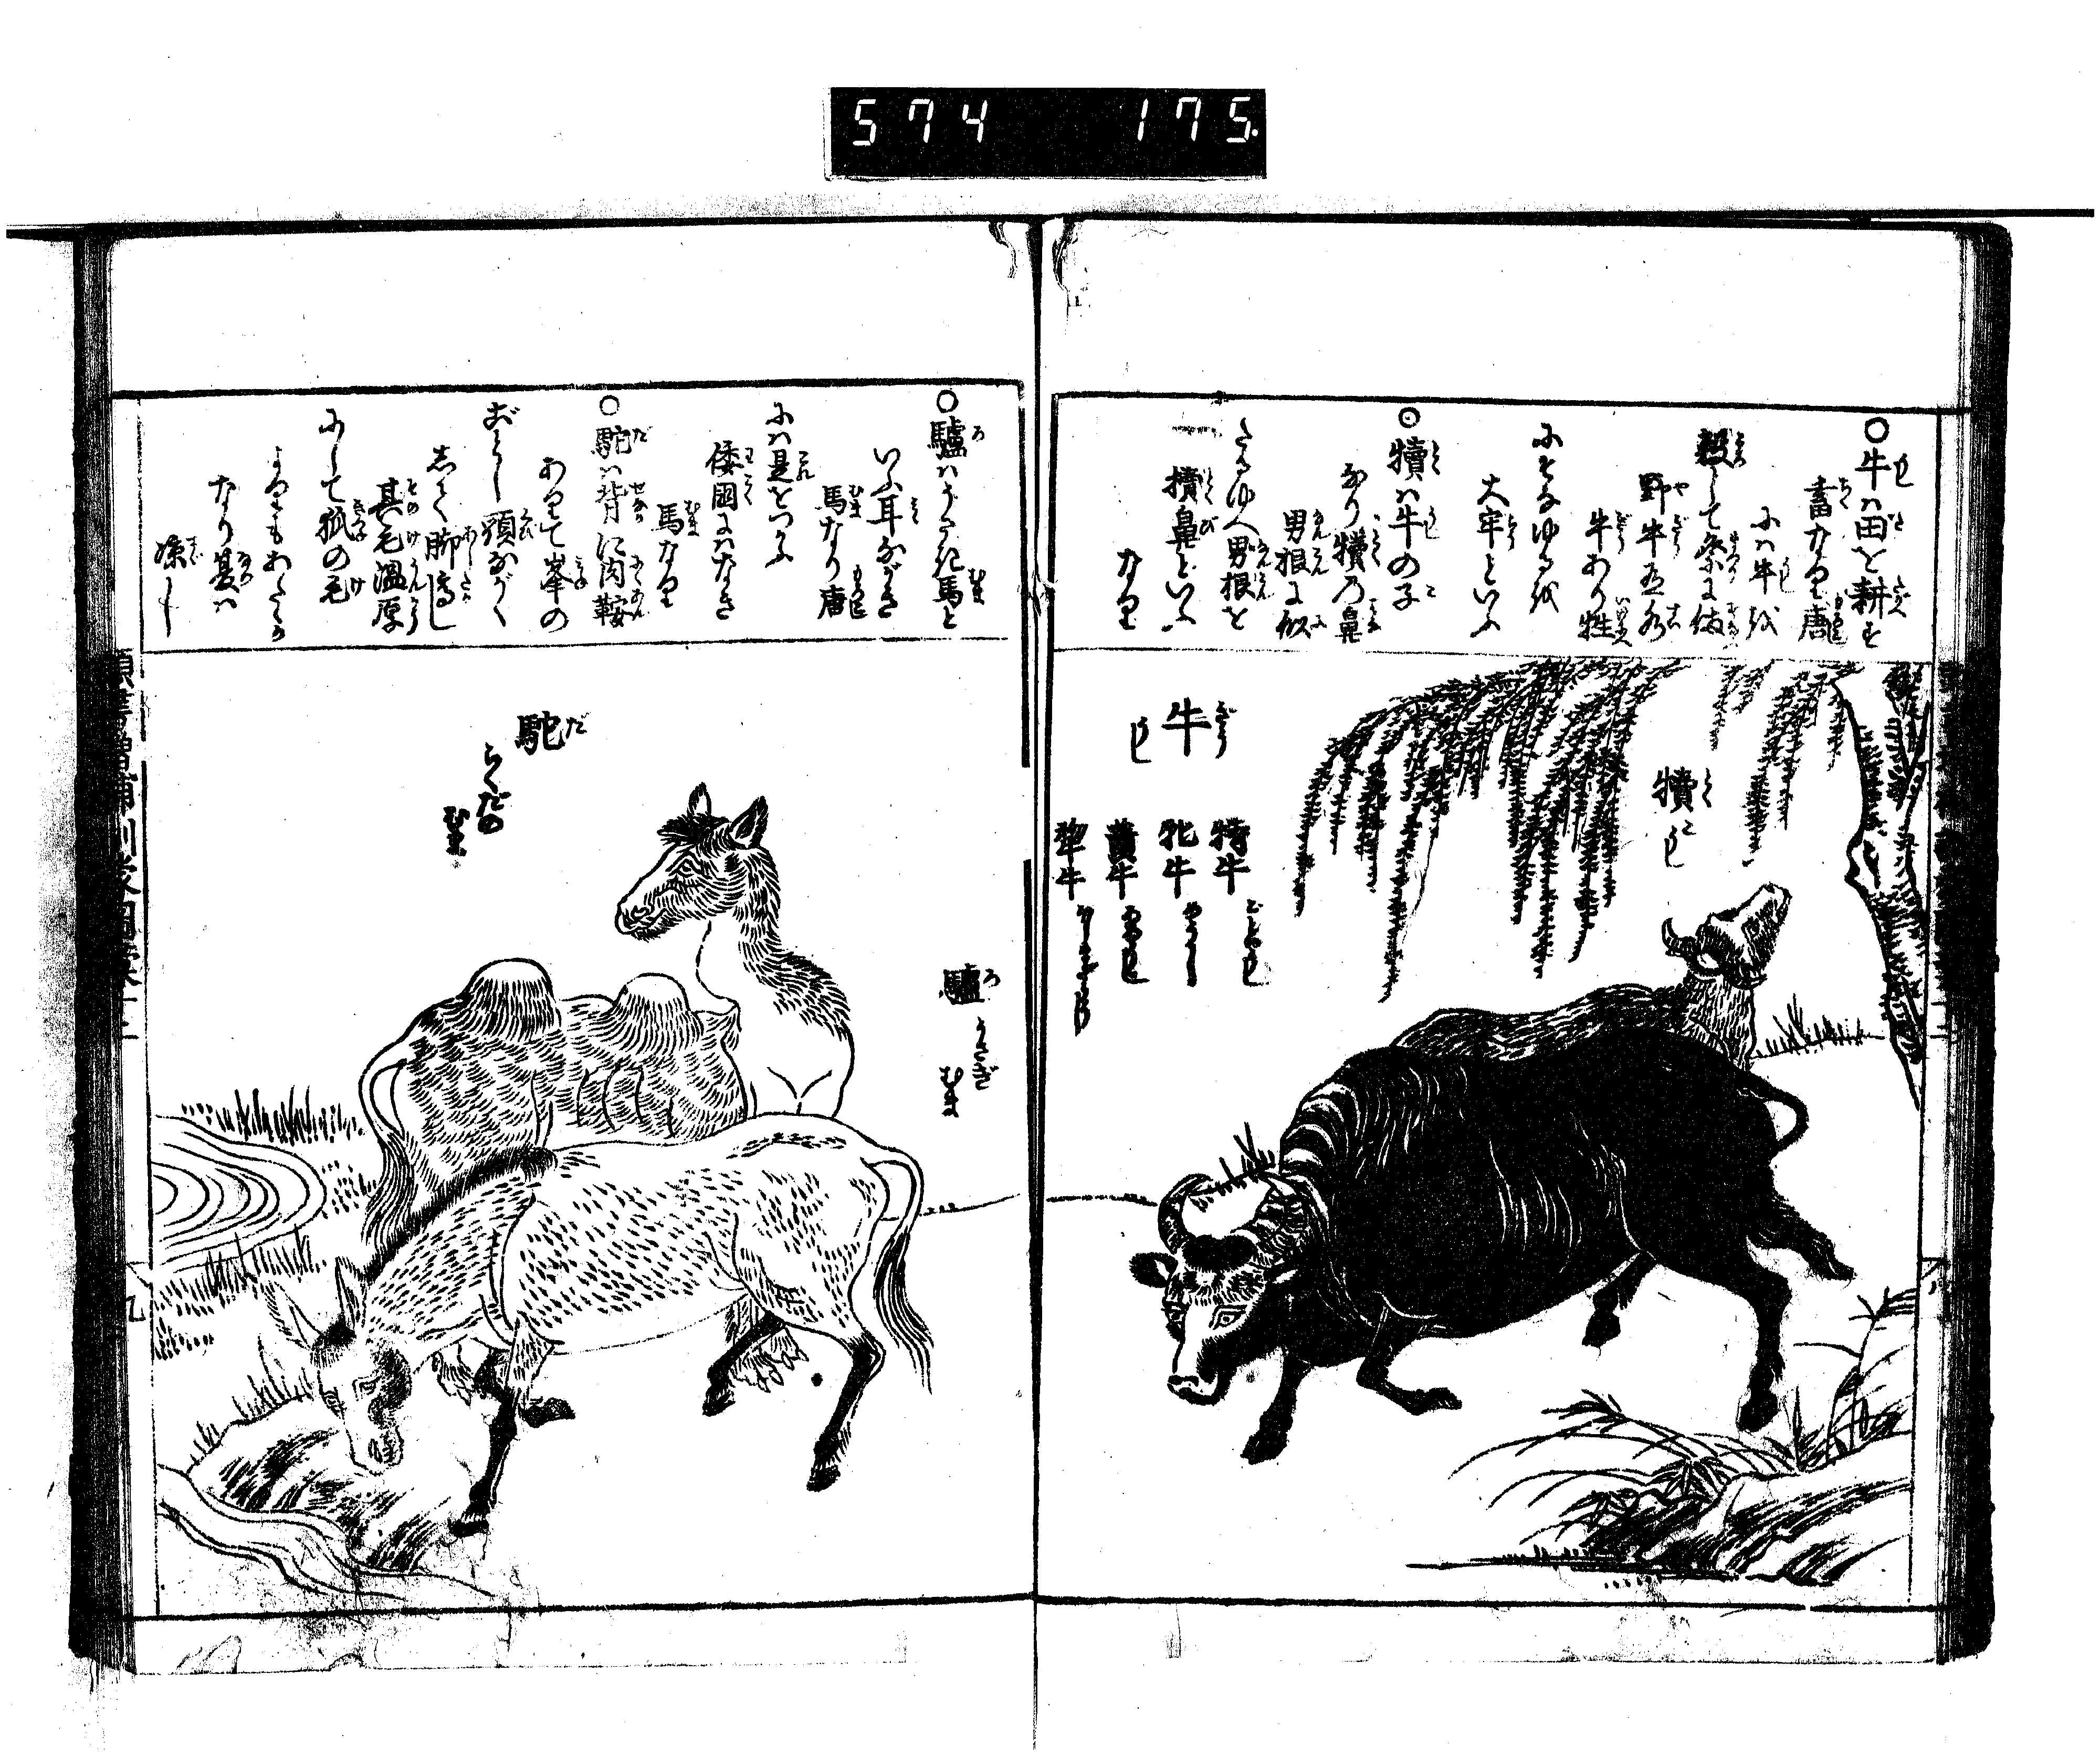 574 175
○牛ハ田を耕す
畜なり唐
にハ牛を
殺して祭に備
野牛水
牛あり牲
にそなゆるを
大牢といふ
犢ハ牛の子
なり犢の鼻
男根に似
たるゆへ男根を
犢鼻といふ
なり
牛 ぎう
うし
特牛
牝牛
黄牛
犂牛
犢 とく
こうし
○驢ハうさき馬と
いふ耳ながき
馬なり唐
にハ是をつかふ
倭国にハなき
馬なり
○駝ハ背に肉鞍
ありて峯の
ごとし頸ながく
して脚高し
其毛温厚
にして狐の毛
よりもあたゝか
なり夏ハ
駝 だ
らくだの
むま
驢 ろ
うさぎ
むま
頭書増補訓蒙図彙十二
九